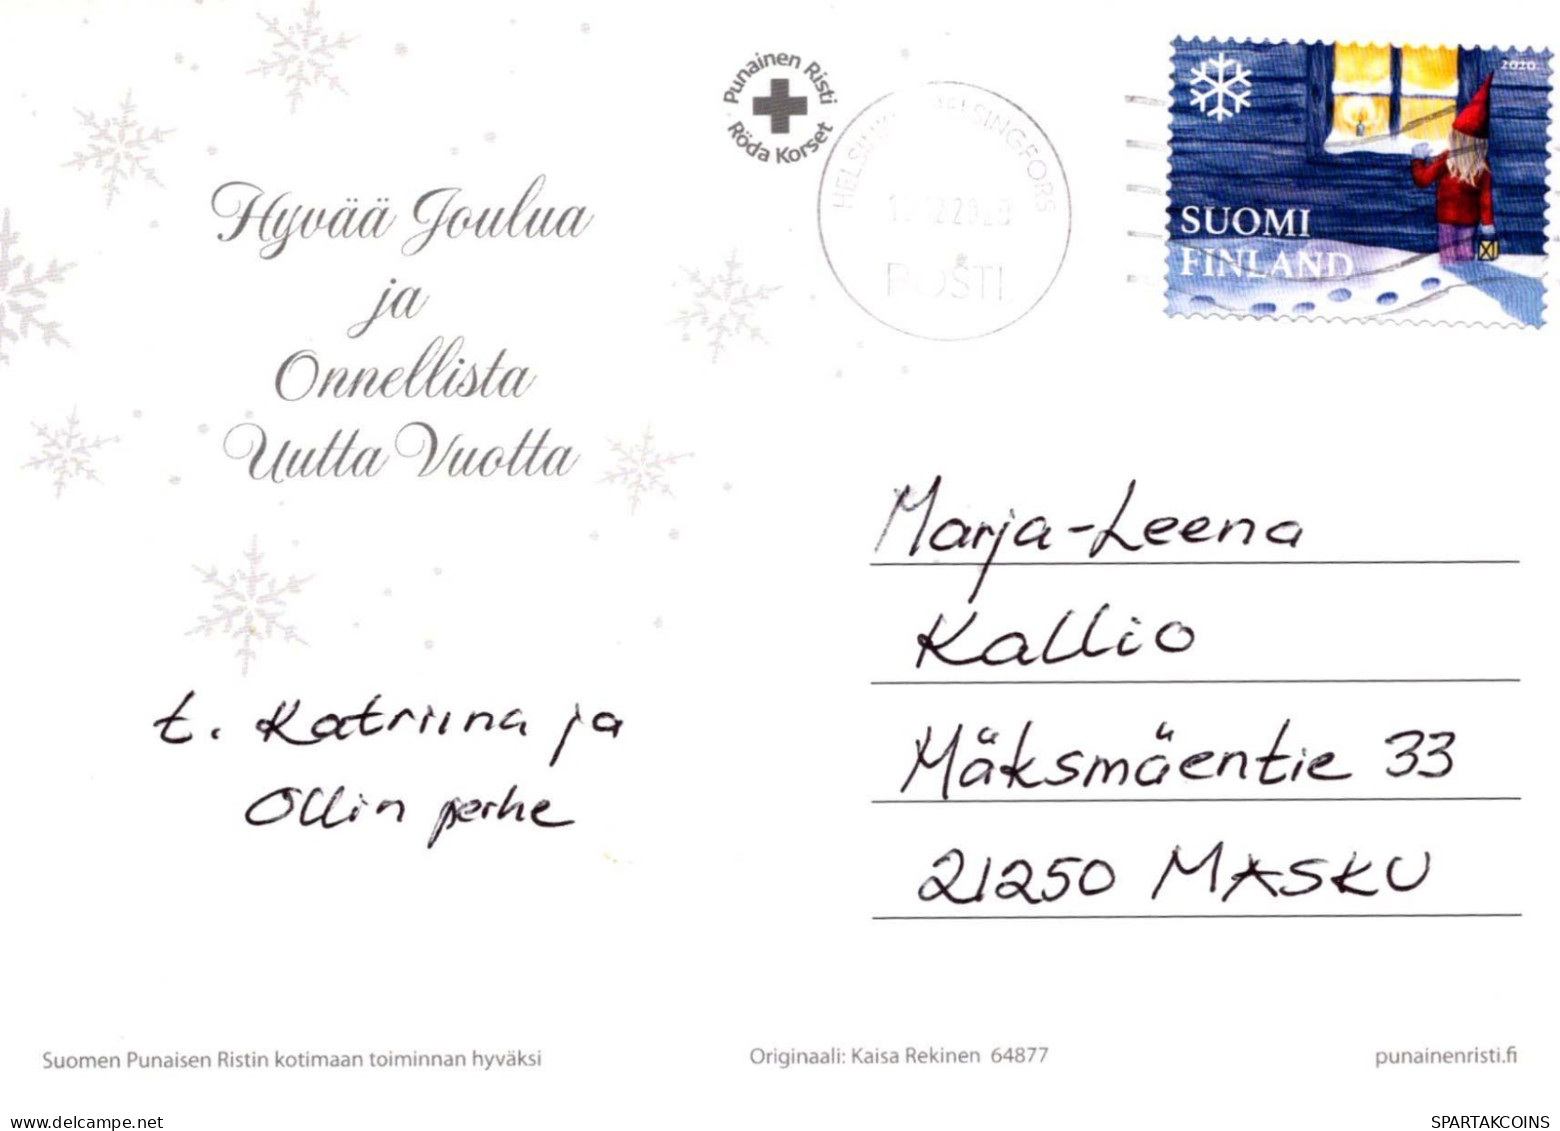 Punainen Risti
Röda Korset
HELSINGFORS
POSTI
2020
SUOMI
FINLAND
Hyvää Joulua
ja
Onnellista
Uutta Vuotta
Marja-Leena
Kallio
Mäksmäentie 33
21250 MASKU
t. Katriina ja
Ollin perhe
Suomen Punaisen Ristin kotimaan toiminnan hyväksi
Originaali: Kaisa Rekinen 64877
punainenristi.fi
www.delcampe.net
SPARTAKCOINS